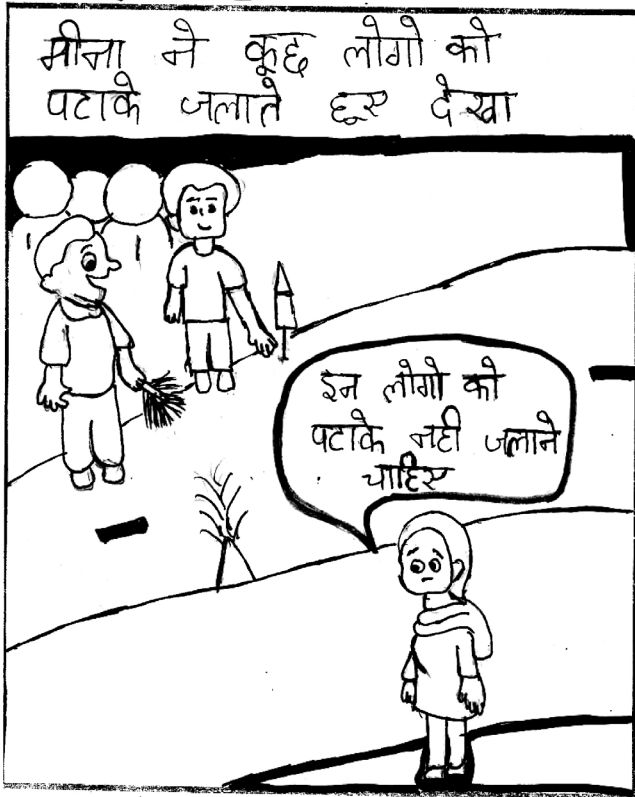 मीना ने कूछ लोगो को
पटाके जलाते हूए देखा
इन लोगो को
पटाके नही जलाने
चाहिए